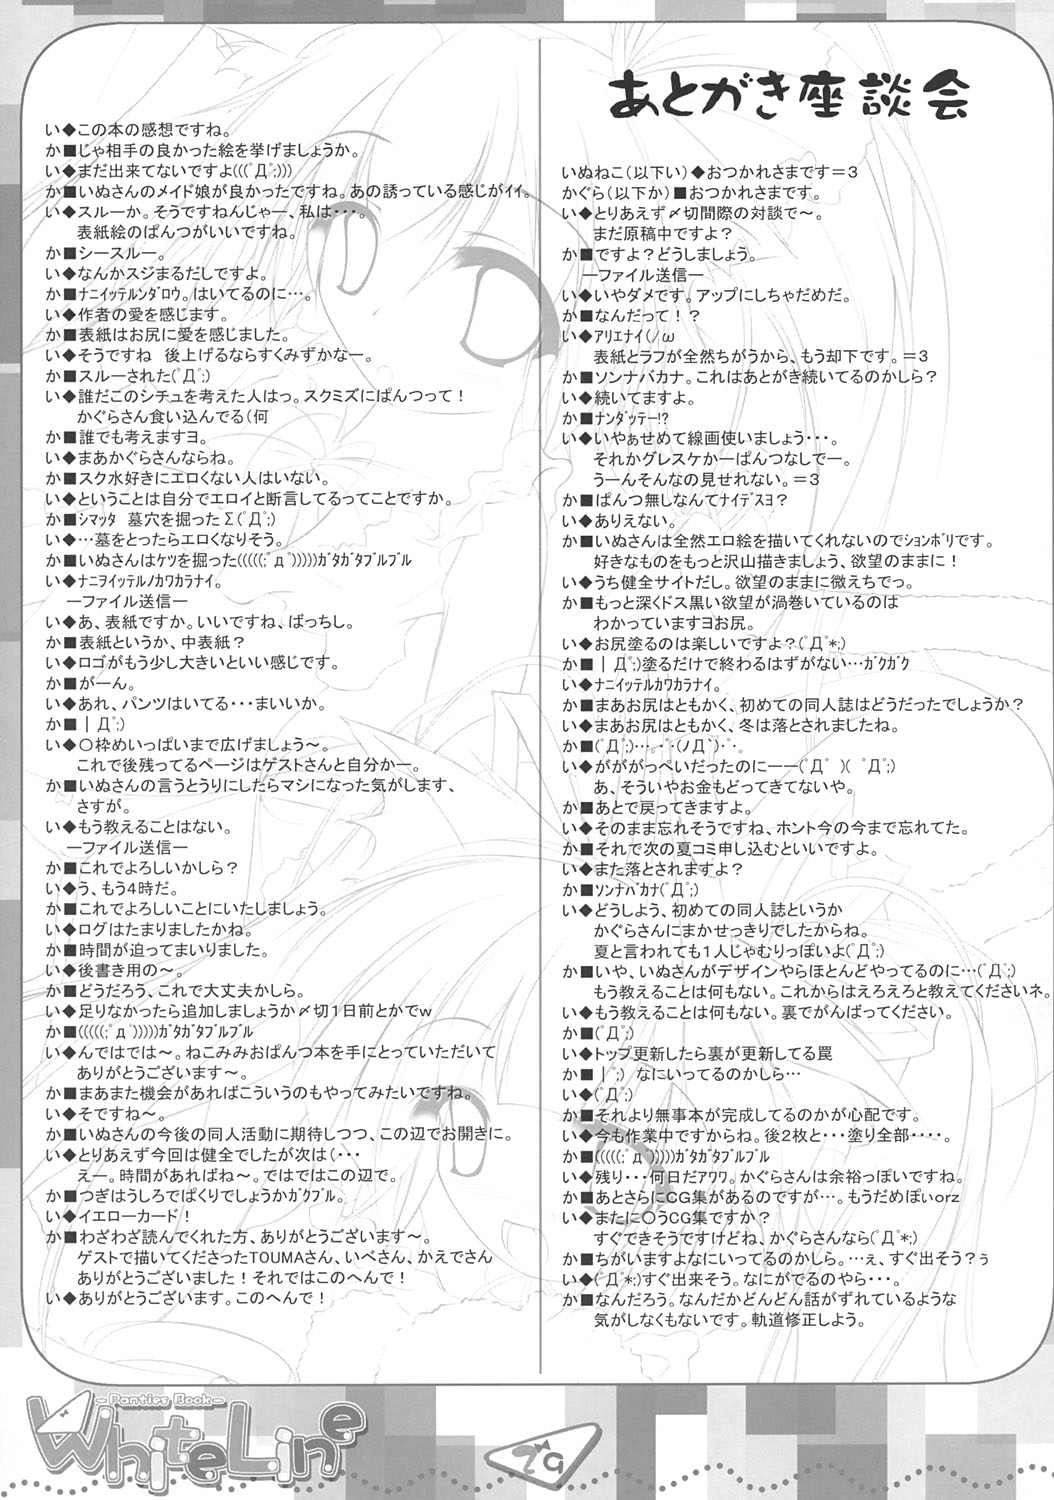 あとがき座談会
いぬねこ(以下い)◆おつかれさまです＝3
かぐら(以下か)■おつかれさまです。
い◆とりあえず〆切間際の対談で～。
まだ原稿中ですよ？
か■ですよ？どうしましょう。
―ファイル送信―
い◆いやダメです。アップにしちゃだめだ。
か■なんだって！？
い◆アリエナイ(ノω
表紙とラフが全然ちがうから、もう却下です。＝3
か■ソンナバカナ。これはあとがき続いてるのかしら？
い◆続いてますよ。
か■ﾅﾝﾀﾞｯﾃｰ!?
い◆いやぁせめて線画使いましょう・・・。
それかグレスケかーぱんつなしでー。
うーんそんなの見せれない。＝3
か■ぱんつ無しなんてﾅｲﾃﾞｽﾖ？
い◆ありえない。
か■いぬさんは全然エロ絵を描いてくれないのでｼｮﾝﾎﾞﾘです。
好きなものをもっと沢山描きましょう、欲望のままに！
い◆うち健全サイトだし。欲望のままに微えちでっ。
か■もっと深くドス黒い欲望が渦巻いているのは
わかっていますヨお尻。
い◆お尻塗るのは楽しいですよ？(ﾟДﾟ*;)
か■┃Дﾟ;)塗るだけで終わるはずがない…ｶﾞｸｶﾞｸ
い◆ﾅﾆｲｯﾃﾙｶﾜｶﾗﾅｲ。
か■まあお尻はともかく、初めての同人誌はどうだったでしょうか？
い◆まあお尻はともかく、冬は落とされましたね。
か■(ﾟДﾟ;)…｡･ﾟ･(ノД`)･ﾟ･｡
い◆がががっぺいだったのにーー(ﾟДﾟ )( ﾟДﾟ;)
あ、そういやお金もどってきてないや。
か■あとで戻ってきますよ。
い◆そのまま忘れそうですね、ホント今の今まで忘れてた。
か■それで次の夏コミ申し込むといいですよ。
い◆また落とされますよ？
か■ｿﾝﾅﾊﾞｶﾅ(ﾟДﾟ;)
い◆どうしよう、初めての同人誌というか
かぐらさんにまかせっきりでしたからね。
夏と言われても1人じゃむりっぽいよ(ﾟДﾟ;)
か■いや、いぬさんがデザインやらほとんどやってるのに…(ﾟДﾟ;)
もう教えることは何もない。これからはえろえろと教えてくださいネ。
い◆もう教えることは何もない。裏でがんばってください。
か■(ﾟДﾟ;)
い◆トップ更新したら裏が更新してる罠
か■┃ﾟ;) なにいってるのかしら…
い◆(ﾟДﾟ;)
か■それより無事本が完成してるのかが心配です。
い◆今も作業中ですからね。後2枚と・・・塗り全部・・・・。
か■(((((;ﾟдﾟ)))))ｶﾞﾀｶﾞﾀﾌﾞﾙﾌﾞﾙ
い◆残り・・・何日だアワワ。かぐらさんは余裕っぽいですね。
か■あとさらにCG集があるのですが…。もうだめぽいorz
い◆またに○うCG集ですか？
すぐできそうですけどね、かぐらさんなら(ﾟДﾟ*;)
か■ちがいますよなにいってるのかしら。…ぇ、すぐ出そう？ぅ
い◆(ﾟДﾟ*;)すぐ出来そう。なにがでるのやら・・・。
か■なんだろう。なんだかどんどん話がずれているような
気がしなくもないです。軌道修正しよう。
い◆この本の感想ですね。
か■じゃ相手の良かった絵を挙げましょうか。
い◆まだ出来てないですよ(((ﾟДﾟ;)))
か■いぬさんのメイド娘が良かったですね。あの誘っている感じがイイ。
い◆スルーか。そうですねんじゃー、私は・・・。
表紙絵のぱんつがいいですね。
か■シースルー。
い◆なんかスジまるだしですよ。
か■ﾅﾆｲｯﾃﾙﾝﾀﾞﾛｳ。はいてるのに…。
い◆作者の愛を感じます。
か■表紙はお尻に愛を感じました。
い◆そうですね　後上げるならすくみずかなー。
か■スルーされた(ﾟДﾟ;)
い◆誰だこのシチュを考えた人はっ。スクミズにぱんつって！
かぐらさん食い込んでる(何
か■誰でも考えますヨ。
い◆まあかぐらさんならね。
か■スク水好きにエロくない人はいない。
い◆ということは自分でエロイと断言してるってことですか。
か■ｼﾏｯﾀ　墓穴を掘ったΣ(ﾟДﾟ;)
い◆…墓をとったらエロくなりそう。
か■いぬさんはｹﾂを掘った(((((;ﾟдﾟ)))))ｶﾞﾀｶﾞﾀﾌﾞﾙﾌﾞﾙ
い◆ﾅﾆｦｲｯﾃﾙﾉｶﾜｶﾗﾅｲ。
―ファイル送信―
い◆あ、表紙ですか。いいですね、ばっちし。
か■表紙というか、中表紙？
い◆ロゴがもう少し大きいといい感じです。
か■がーん。
い◆あれ、パンツはいてる・・・まいいか。
か■┃Дﾟ;)
い◆○枠めいっぱいまで広げましょう～。
これで後残ってるページはゲストさんと自分かー。
か■いぬさんの言うとうりにしたらマシになった気がします、
さすが。
い◆もう教えることはない。
―ファイル送信―
か■これでよろしいかしら？
い◆う、もう4時だ。
か■これでよろしいことにいたしましょう。
い◆ログはたまりましたかね。
か■時間が迫ってまいりました。
い◆後書き用の～。
か■どうだろう、これで大丈夫かしら。
い◆足りなかったら追加しましょうか〆切1日前とかでw
か■(((((;ﾟдﾟ)))))ｶﾞﾀｶﾞﾀﾌﾞﾙﾌﾞﾙ
い◆んではでは～。ねこみみおぱんつ本を手にとっていただいて
ありがとうございます～。
か■まあまた機会があればこういうのもやってみたいですね。
い◆そですね～。
か■いぬさんの今後の同人活動に期待しつつ、この辺でお開きに。
い◆とりあえず今回は健全でしたが次は(・・・
えー。時間があればね～。ではではこの辺で。
か■つぎはうしろでぱくりでしょうかｶﾞｸﾌﾞﾙ。
い◆イエローカード！
か■わざわざ読んでくれた方、ありがとうございます～。
ゲストで描いてくださったTOUMAさん、いべさん、かえでさん
ありがとうございました！それではこのへんで！
い◆ありがとうございます。このへんで！
-Panties Book-
WhiteLine
29